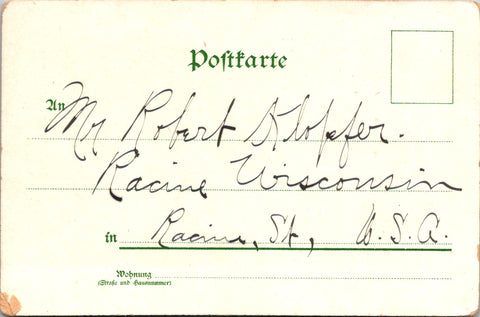 Postkarte
An Mr Robert Klopfer.
Racine Wisconsin
in Racine, St, U.S.A.
Wohnung
(Straße und Hausnummer)